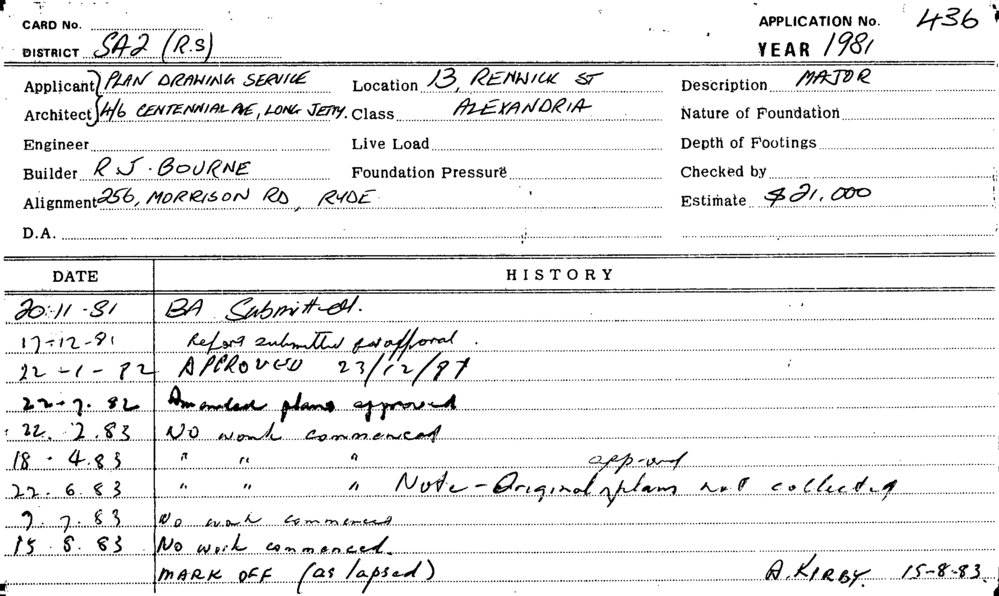 CARD No.
APPLICATION No. 436
DISTRICT SA2 (R.S)
YEAR 1981
Applicant } PLAN DRAWING SERVICE Location 13, RENWICK ST Description MAJOR
Architect } 4/6 CENTENNIAL AVE, LONG JETTY. Class ALEXANDRIA Nature of Foundation
Engineer Live Load Depth of Footings
Builder R J. BOURNE Foundation Pressure Checked by
Alignment 256, MORRISON RD, RYDE Estimate $21,000
D.A.
DATE HISTORY
20-11-81 BA Submitted.
17-12-81 Report submitted for approval.
22-1-82 APPROVED 23/12/81
22-7.82 Amended plans approved
22.2.83 NO work commenced
18.4.83 " " "
approved
22.6.83 " " " Note - Original plans not collected
7.7.83 No work commenced
15.8.83 No work commenced.
MARK OFF (as lapsed) A. KIRBY. 15-8-83.